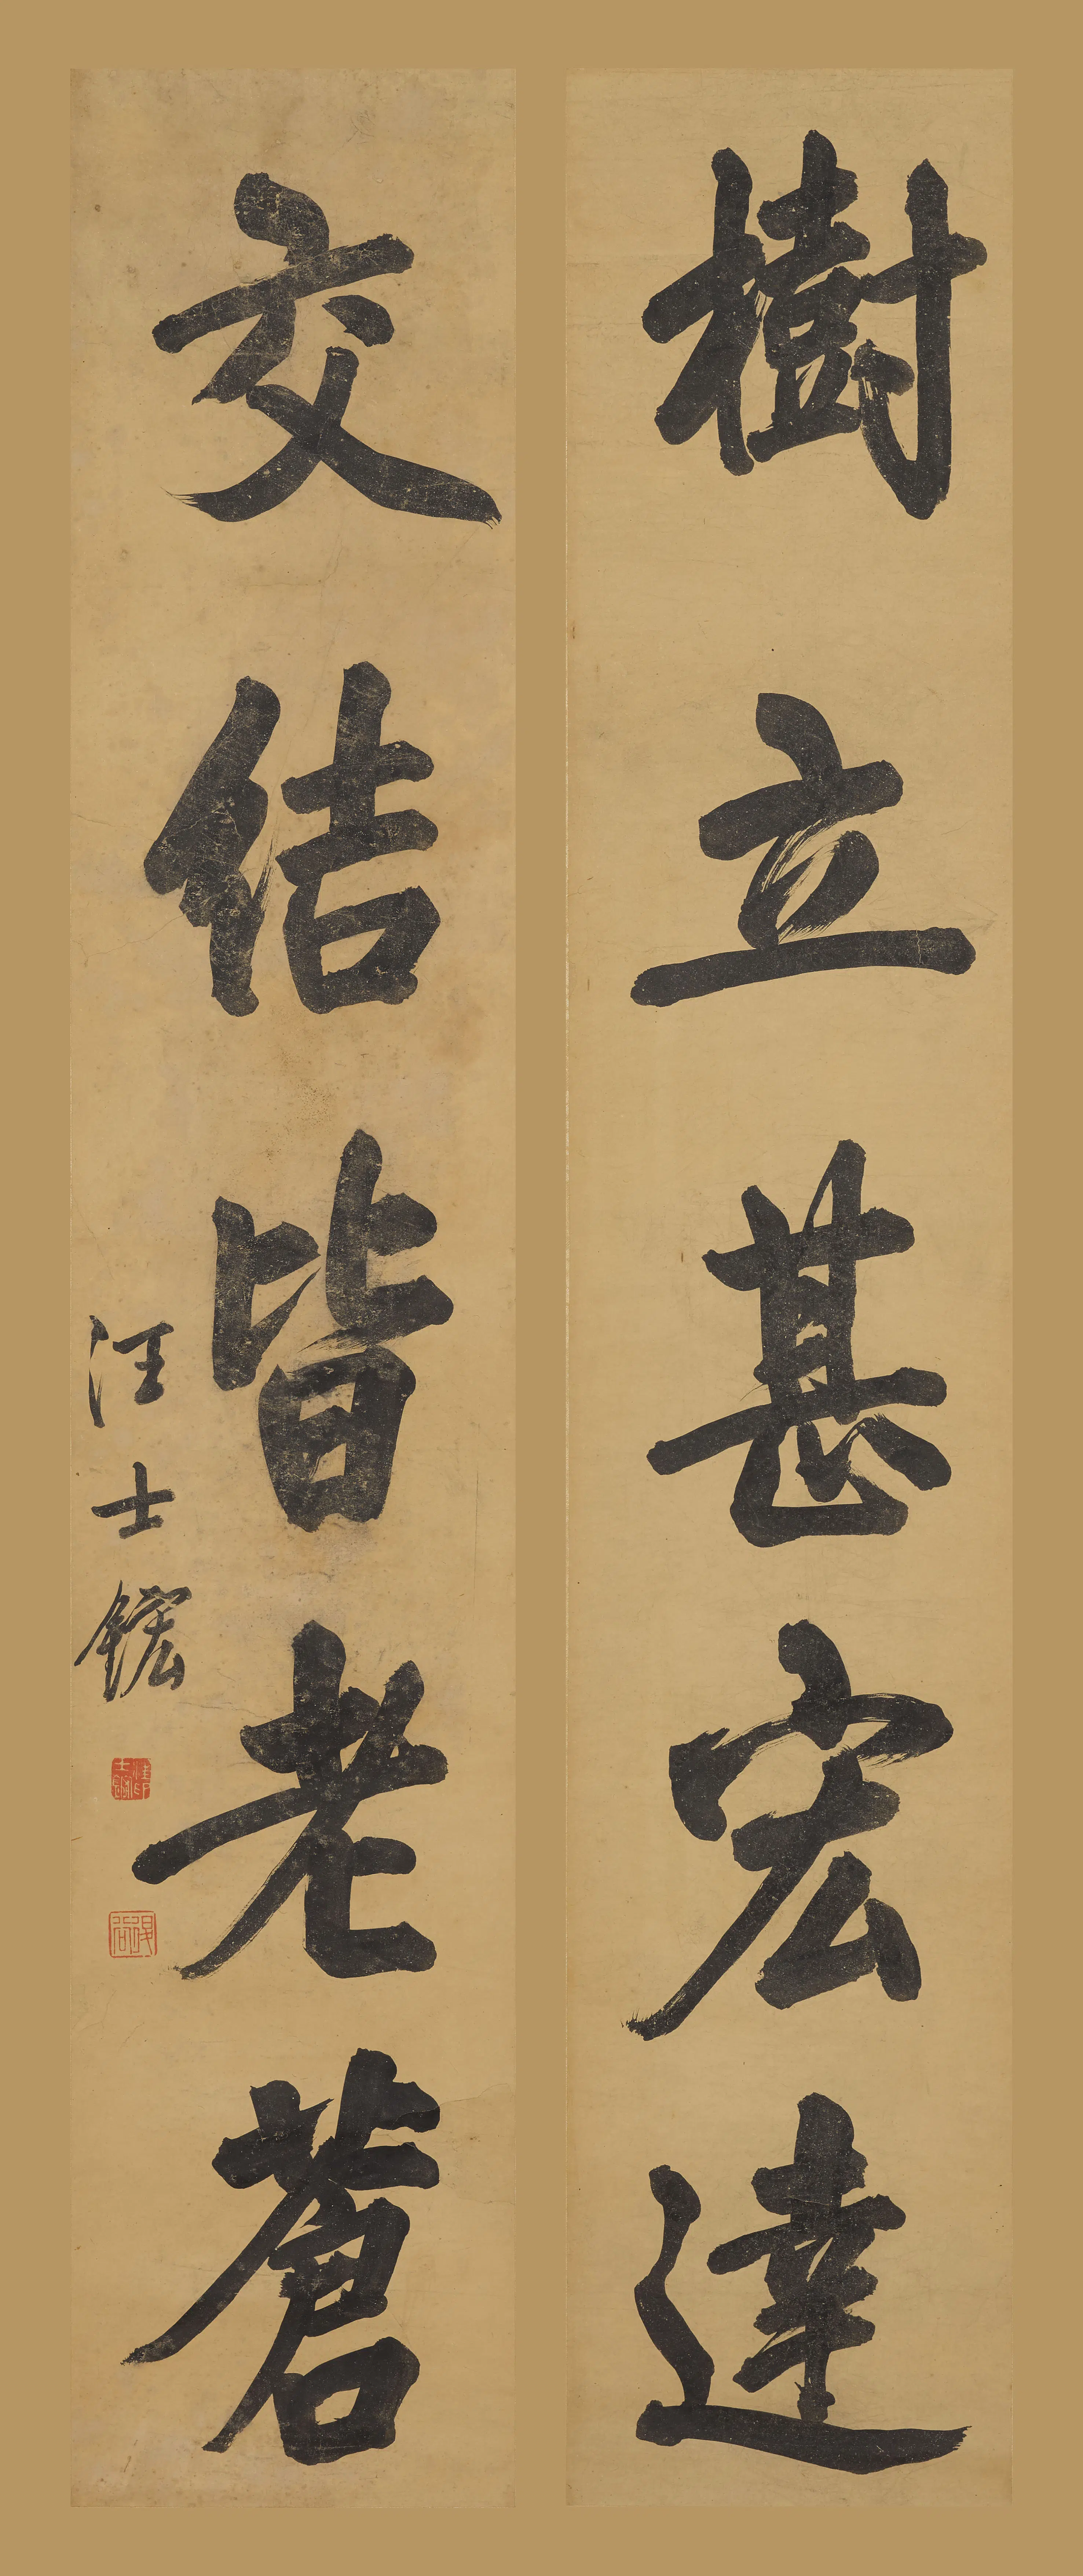 樹立甚宏達
交結皆老蒼
汪士鋐